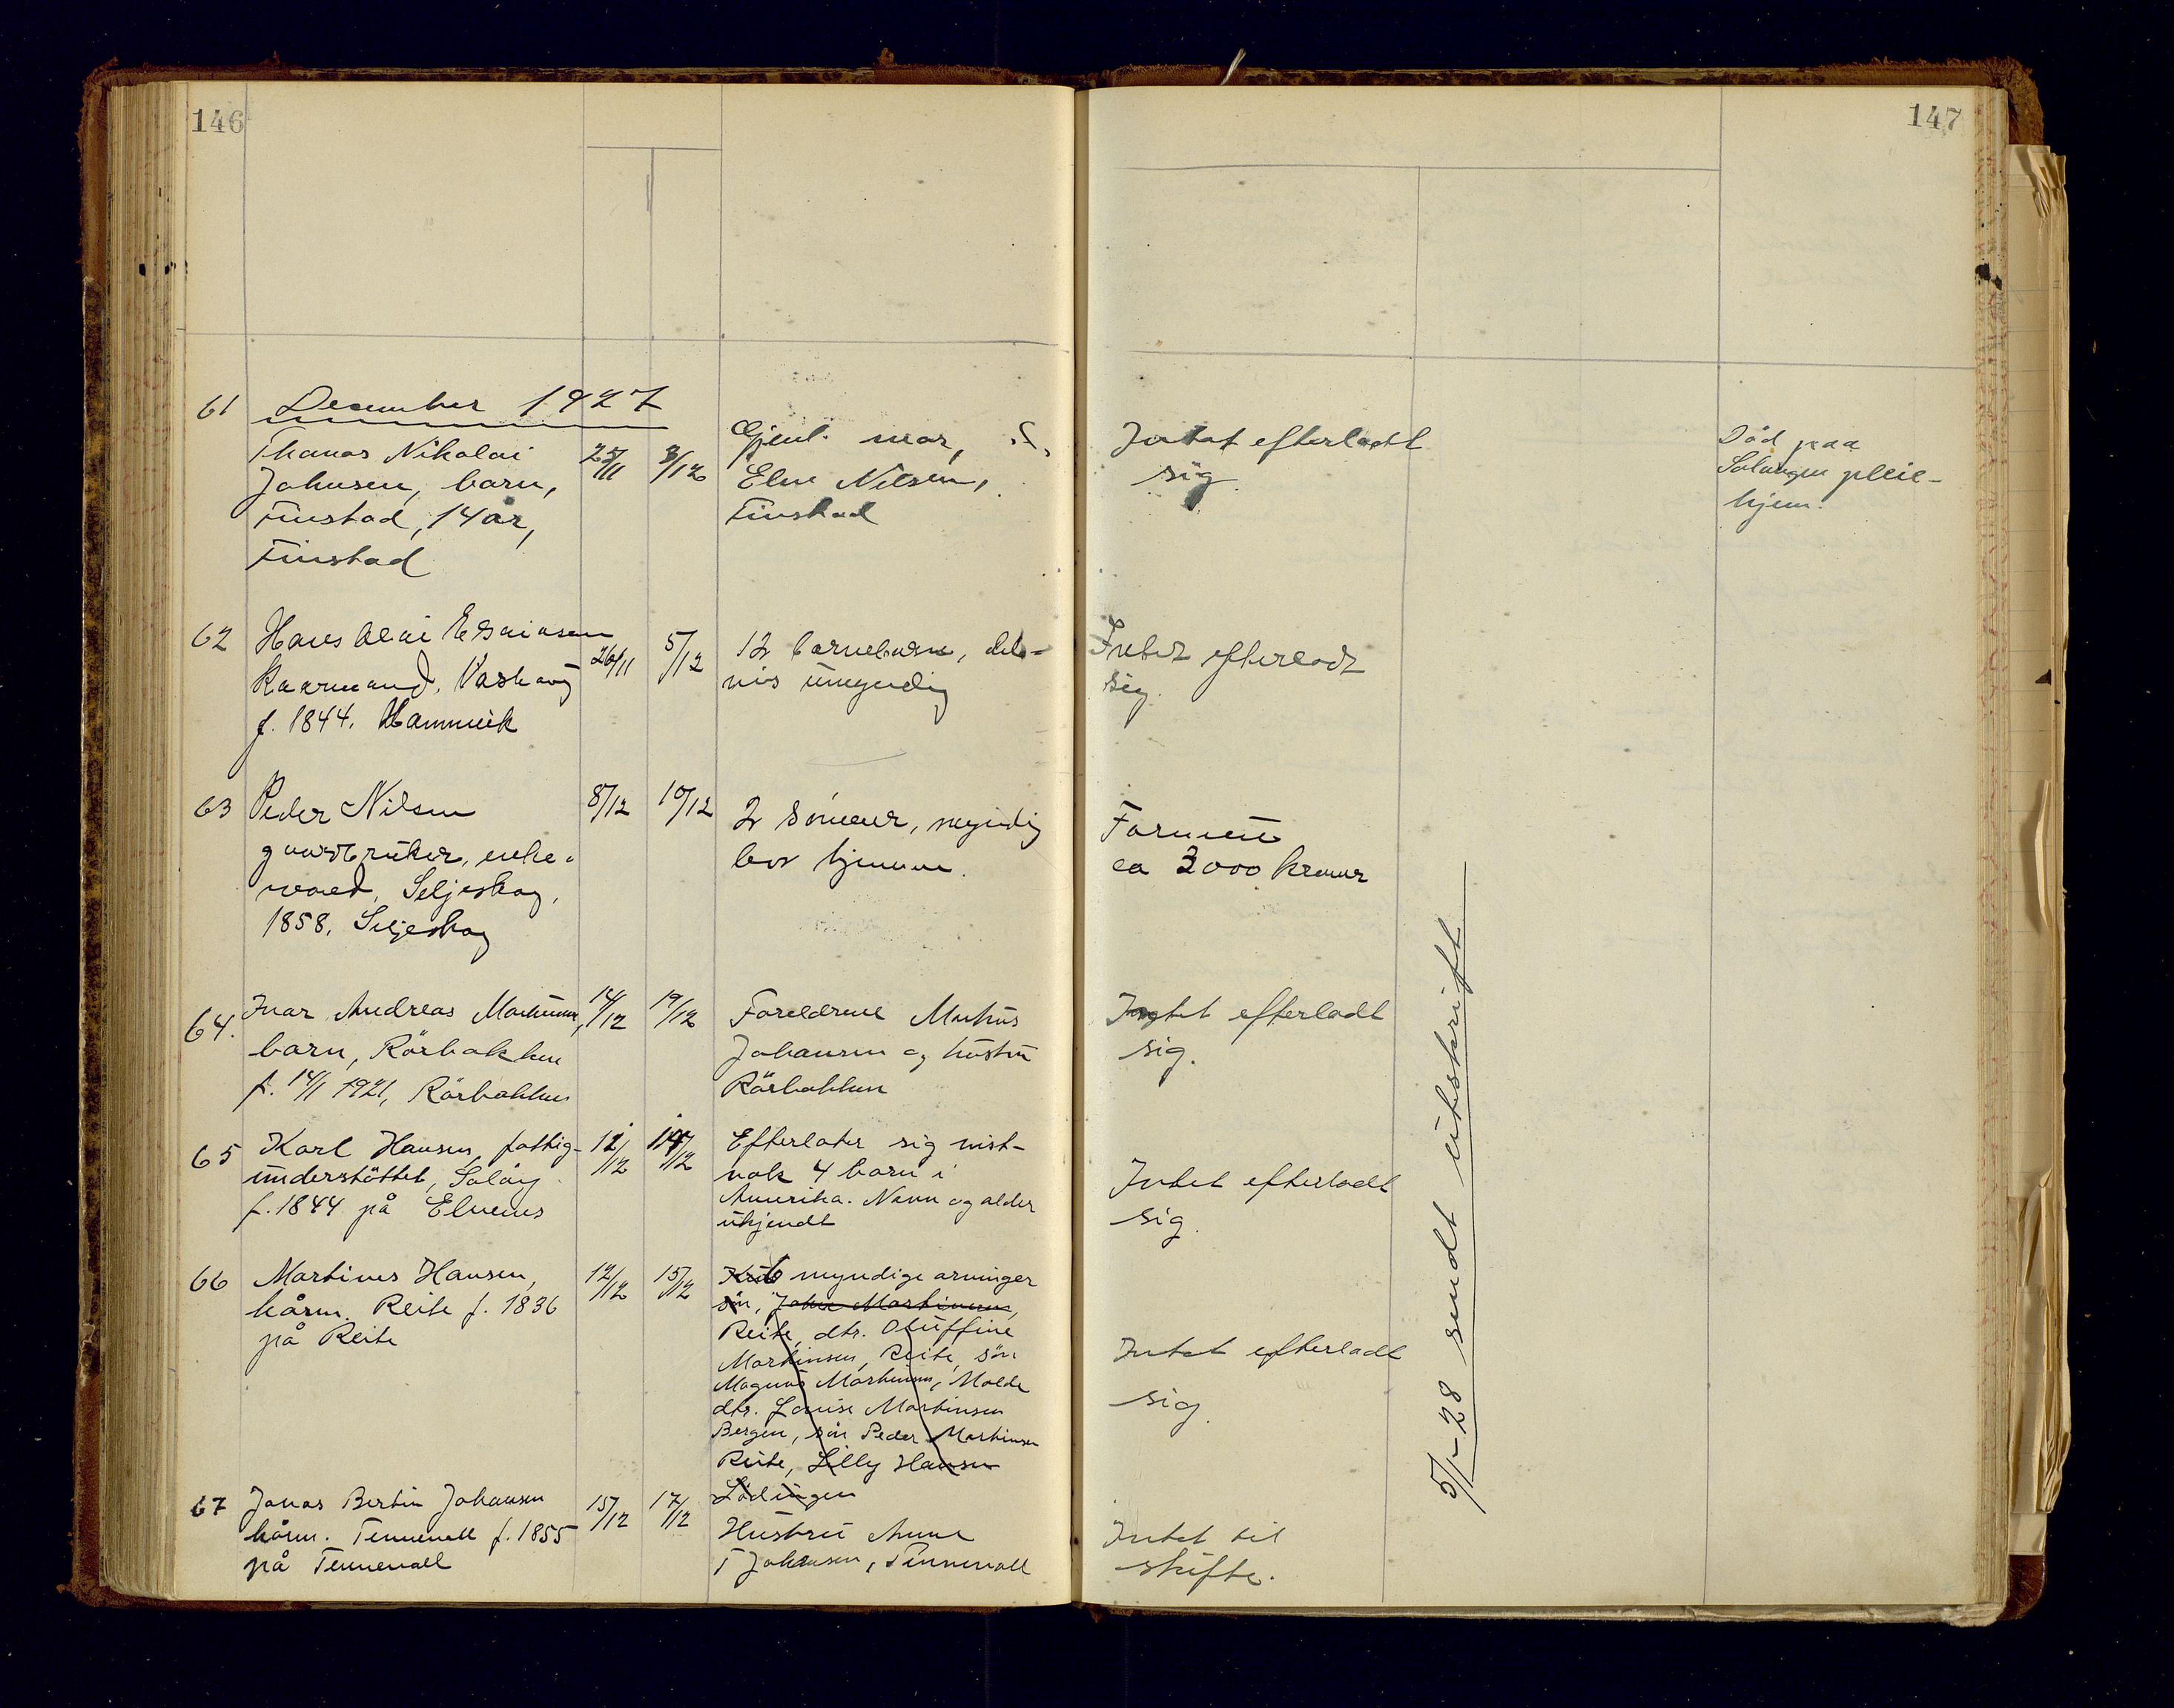 146
147
61 December 1927
Thomas Nikolai
Johnsen, barn, 25/11 3/12
Finstad, 14 år,
Finstad
Gjenl. mor,
Elen Nilsen,
Finstad
Intet efterladt
sig.
Död paa
Salangen pleie-
hjem.
62 Hans Olai Esaiasen
Kaarmand, Vashaug 26/11 5/12
f. 1844. Hamnvik
12 barnebarn, del-
vis umyndig
Intet efterladt
sig.
63 Peder Nilsen 8/12 10/12
gaardbruker, enke-
mand, Seljeskog,
1858. Seljeskog
2 sönner, myndig
bor hjemme.
Formue
ca 3000 kroner
64. Ivar Andreas Markussen, 14/12 19/12
barn, Rörbakken
f. 14/1 1921, Rörbakken
Foreldrene Markus
Johansen og hustru
Rörbakken
Intet efterladt
sig.
65 Karl Hansen, fattig- 12/12 14/12
understöttet, Salöy
f. 1844 på Elvenes
Efterlater sig nist-
nok 4 barn i
Amerika. Navn og alder
ukjendt
Intet efterladt
sig.
66 Martinus Hansen, 12/12 15/12
kårm. Reite f. 1836
på Reite
Kun 6 myndige arvinger
sön, Johan Martinsen,
Reite, dtr. Oluffine
Martinsen, Reite, sön
Magnus Martinsen, Molde
dtr. Louise Martinsen
Bergen, sön Peder Martinsen
Reite, Lilly Hansen
Lödingen
Intet efterladt
sig.
67 Jonas Bertin Johansen 15/12 17/12
kårm. Tennevoll f. 1855
på Tennevoll
Hustru Anne
J Johansen, Tennevoll
Intet til
skifte.
5/1-28 sendt utskrift